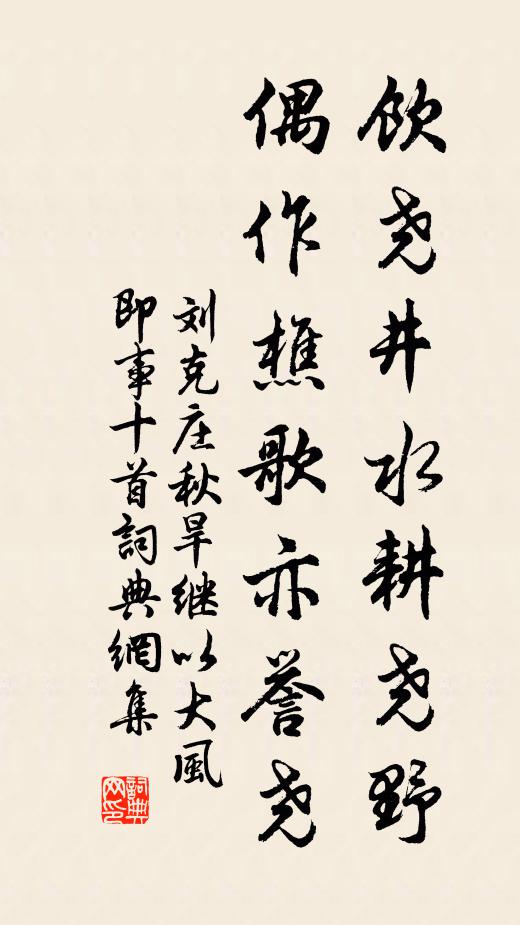 饮尧井水耕尧野
偶作樵歌亦誉尧
刘克庄秋旱继以大風
即事十首詞典網集
詞典网印